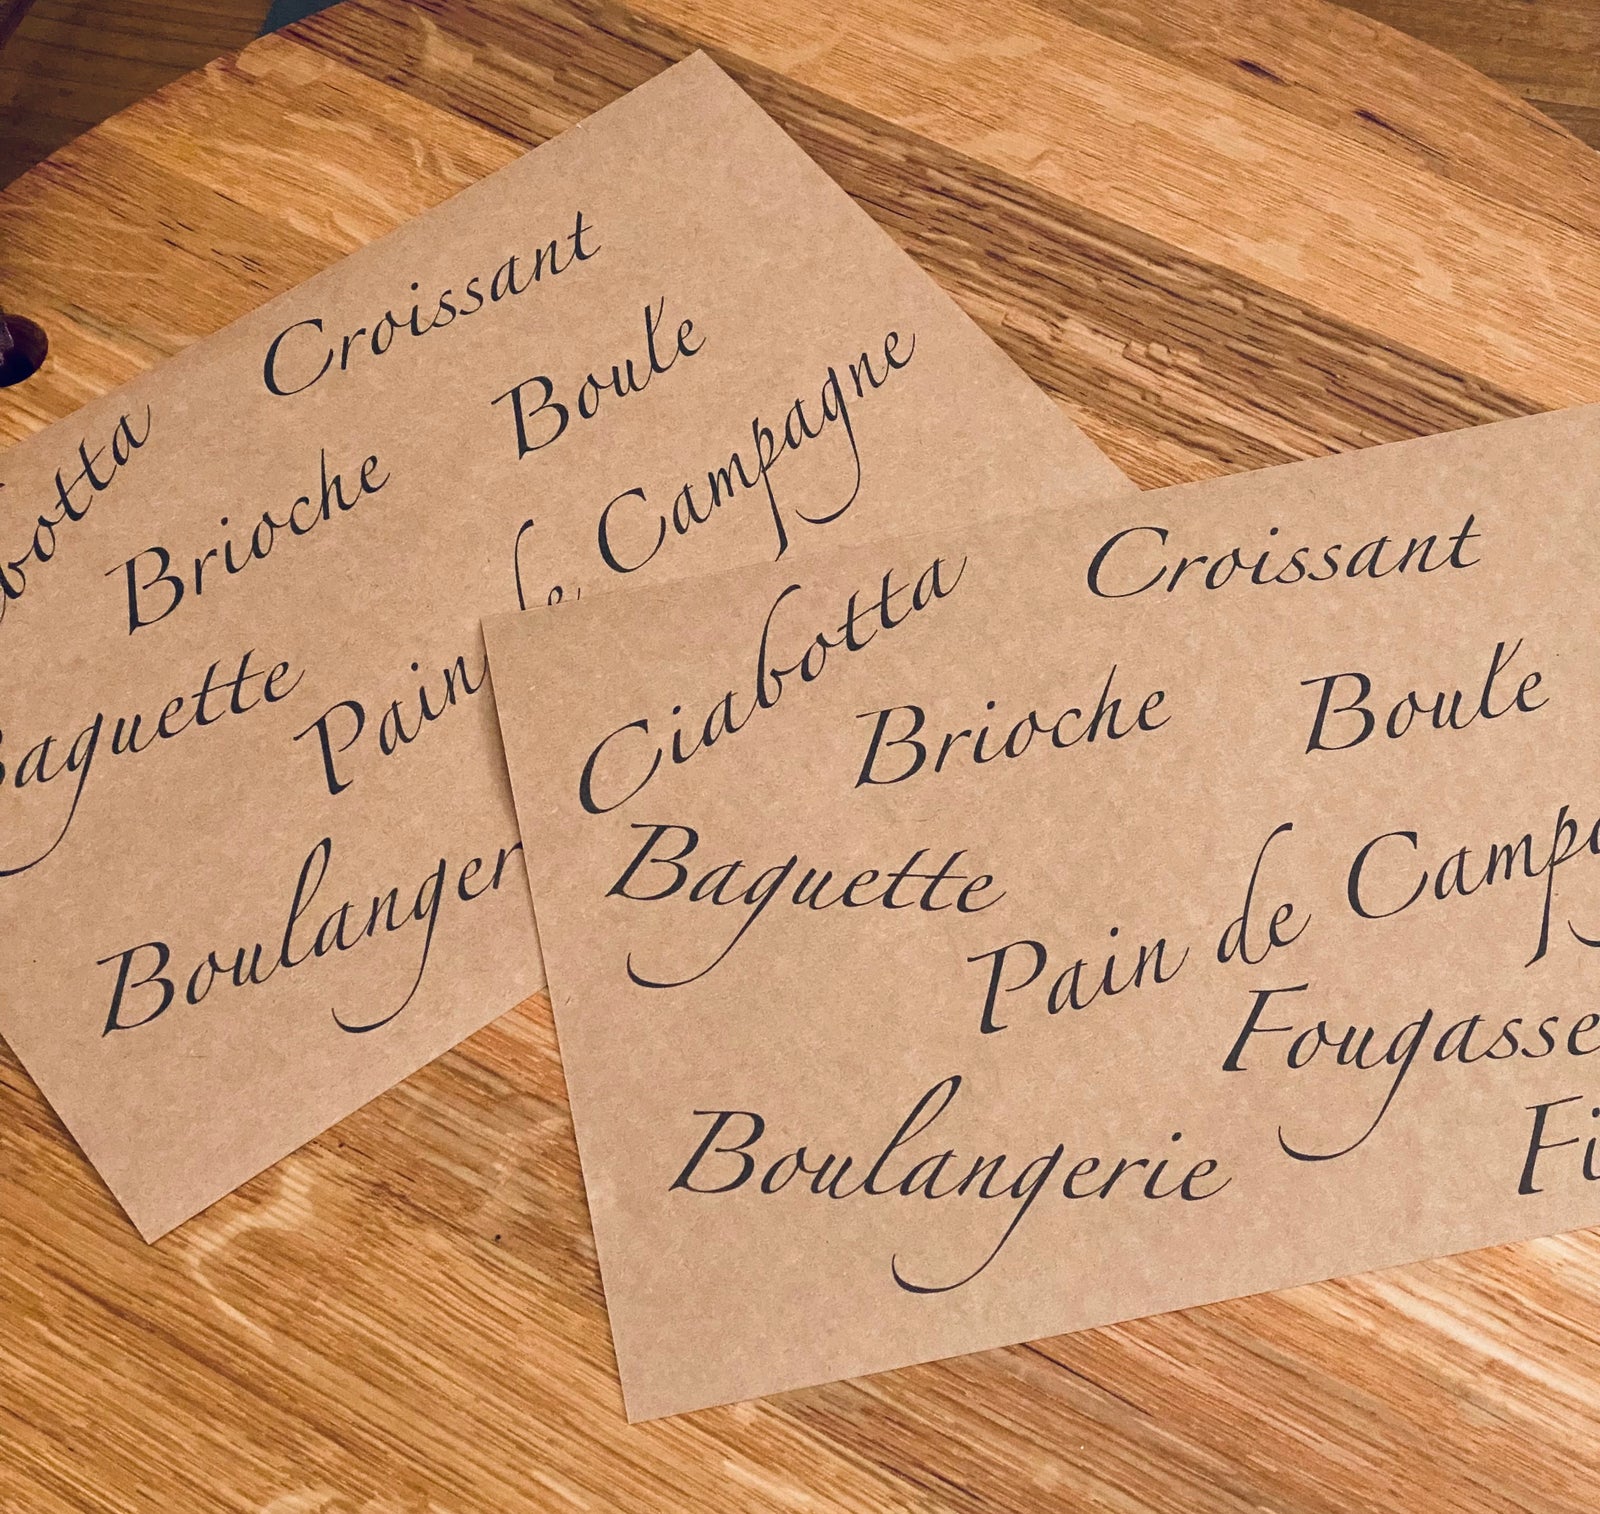 Croissant
Boule
botta
Brioche
de Campagne
Baguette
Pain
Boulanger
Croissant
Ciabotta
Brioche
Boule
Baguette
Pain de Campa
Fougasse
Boulangerie
Fi